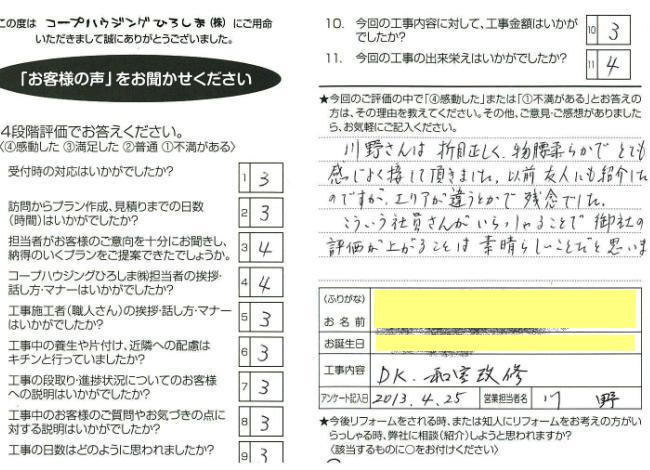 この度は コープハウジングひろしま(株) にご用命
いただきまして誠にありがとうございました。
「お客様の声」をお聞かせください
4段階評価でお答えください。
〈④感動した ③満足した ②普通 ①不満がある〉
受付時の対応はいかがでしたか?
1 3
訪問からプラン作成、見積りまでの日数
(時間)はいかがでしたか?
2 3
担当者がお客様のご意向を十分にお聞きし、
納得のいくプランをご提案できたでしょうか。
3 4
コープハウジングひろしま㈱担当者の挨拶・
話し方・マナーはいかがでしたか?
4 4
工事施工者(職人さん)の挨拶・話し方・マナー
はいかがでしたか?
5 3
工事中の養生や片付け、近隣への配慮は
キチンと行っていましたか?
6 3
工事の段取り・進捗状況についてのお客様
への説明はいかがでしたか?
7 3
工事中のお客様のご質問やお気づきの点に
対する説明はいかがでしたか?
8 3
工事の日数はどのように思われましたか?
9 3
10. 今回の工事内容に対して、工事金額はいかが
でしたか?
10 3
11. 今回の工事の出来栄えはいかがでしたか?
11 4
★今回のご評価の中で「④感動した」または「①不満がある」とお答えの
方は、その理由を教えてください。その他、ご意見・ご感想がありました
ら、お気軽にご記入ください。
川野さんは 折目正しく、物腰柔らかで とても
感じよく接して頂きました。以前 友人にも紹介した
のですが、エリアが違うとかで 残念でした。
こういう社員さんが いらっしゃることで 御社の
評価が上がることは 素晴らしいことだと 思いま
(ふりがな)
お 名 前
お誕生日
工事内容 DK. 和室改修
アンケート記入日 2013. 4. 25 営業担当者名 川 野
★今後リフォームをされる時、または知人にリフォームをお考えの方がい
らっしゃる時、弊社に相談(紹介)しようと思われますか?
(該当するものに○をお付けください)